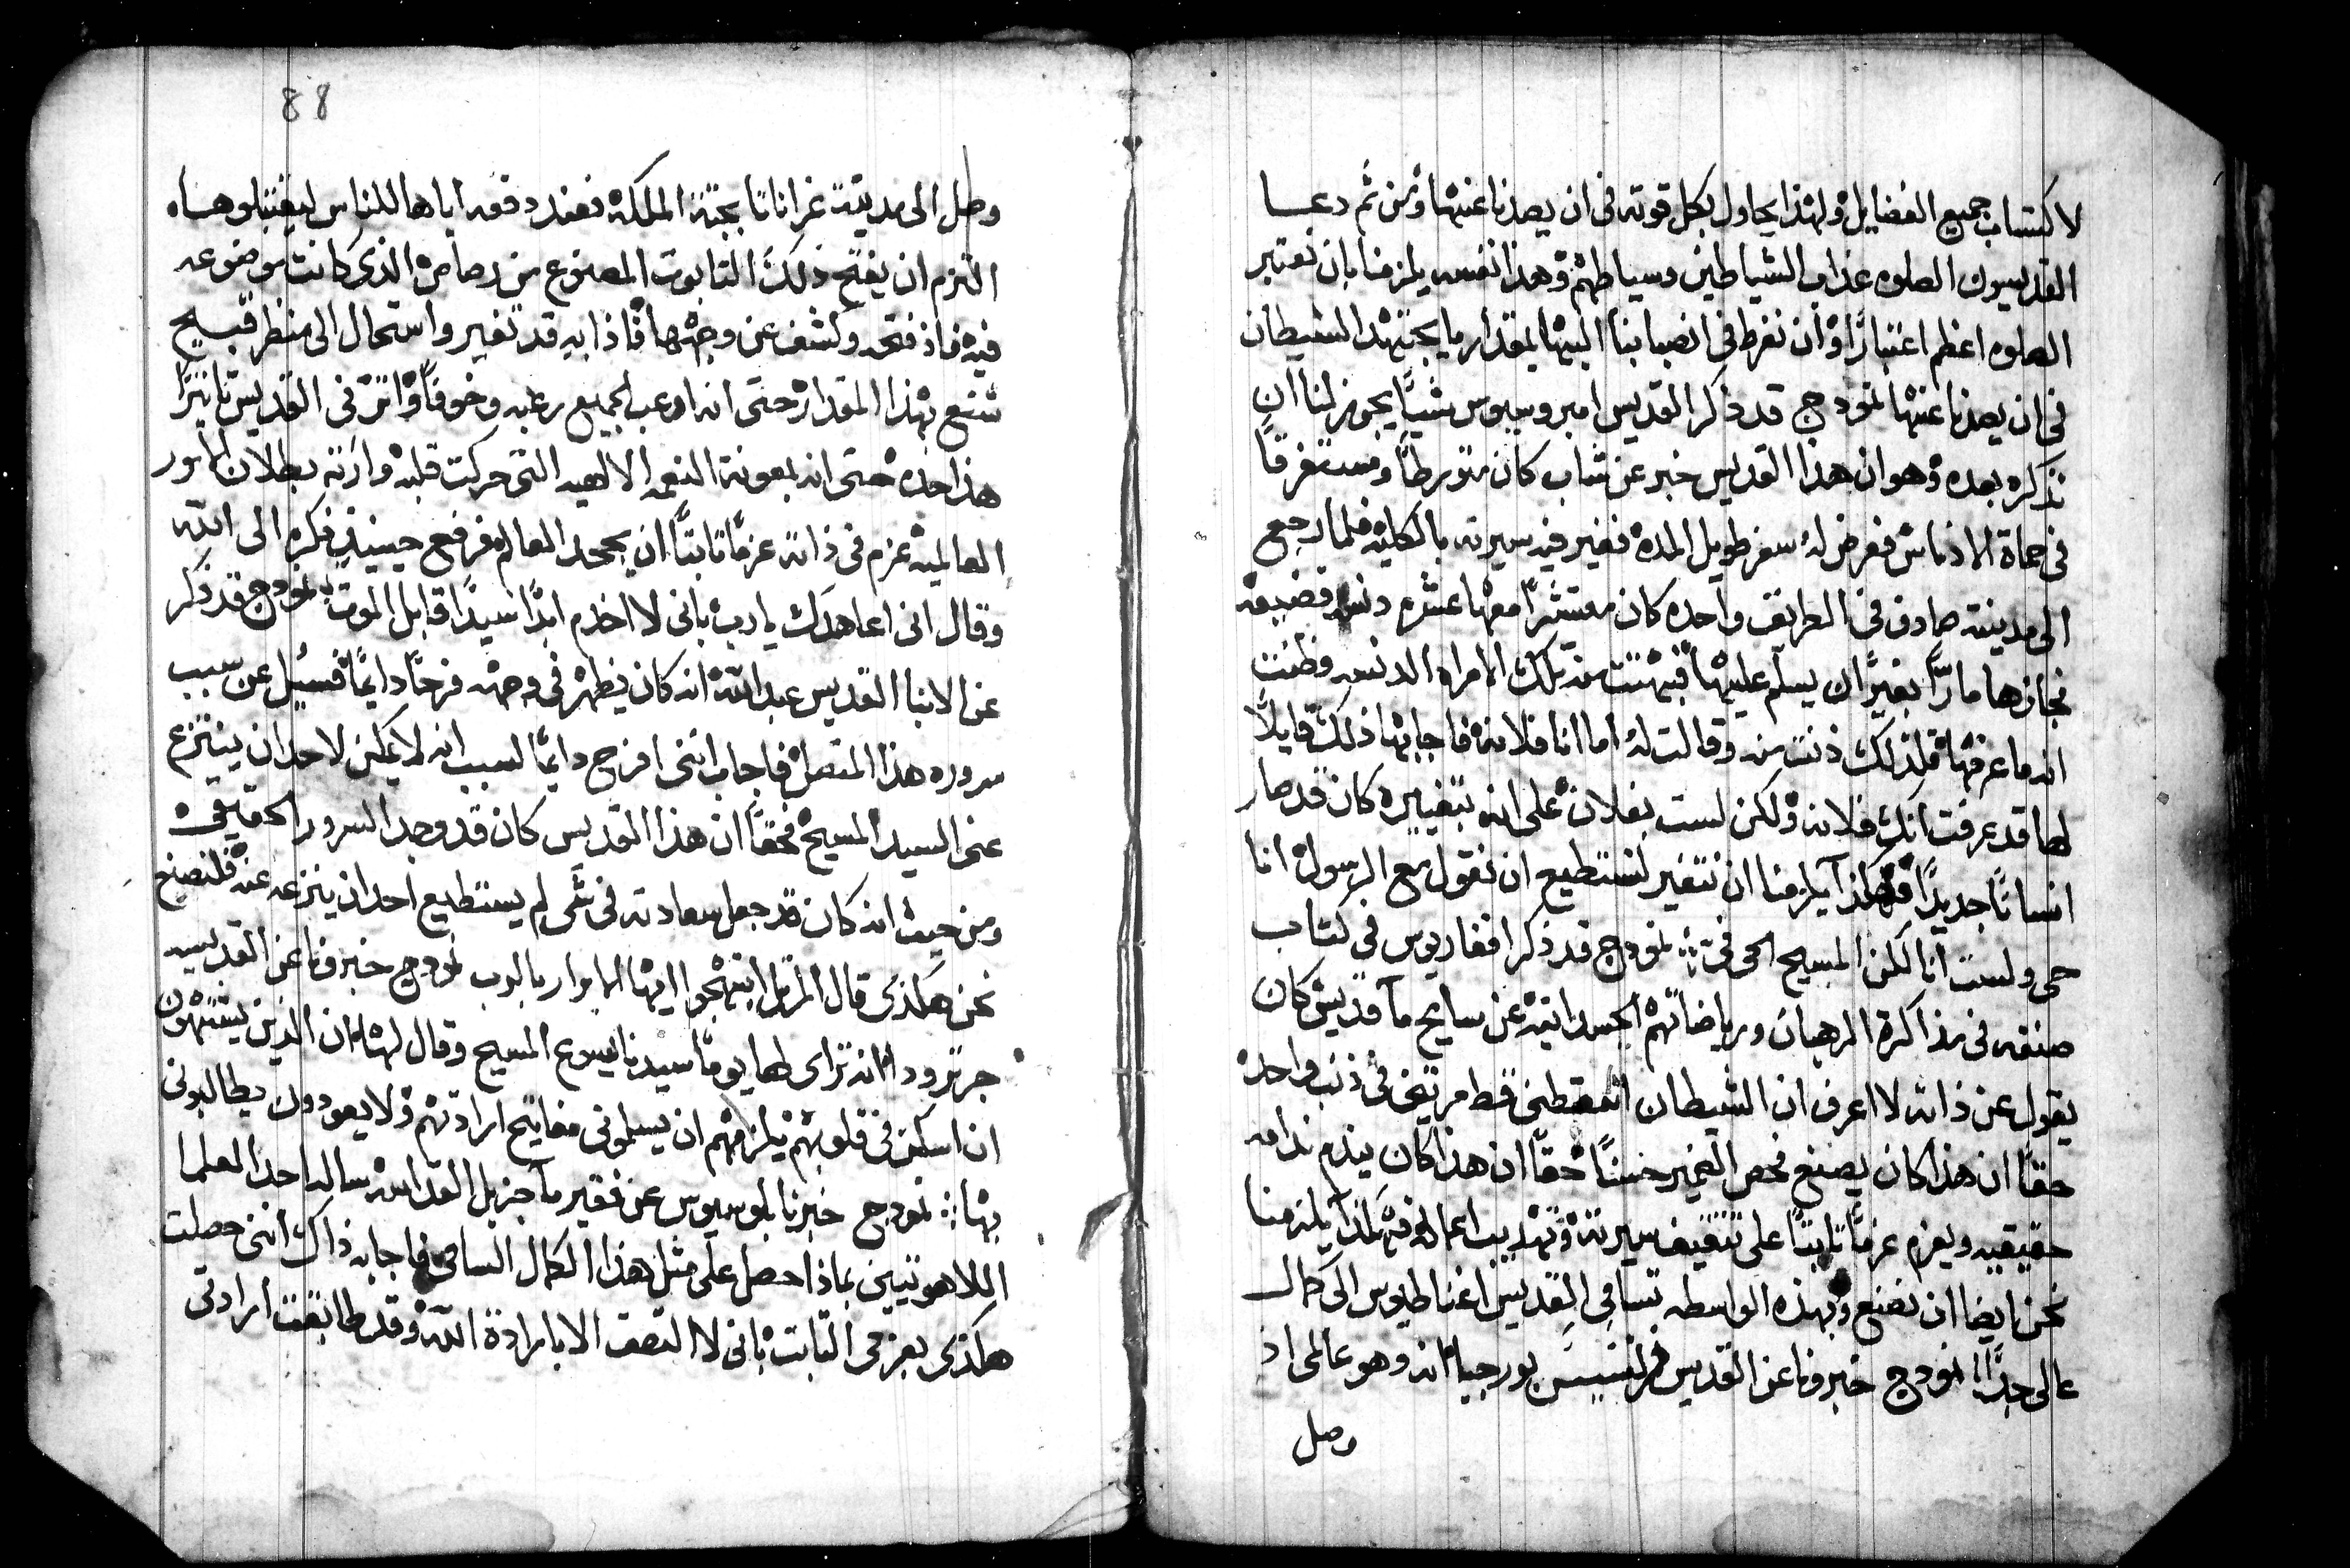 لاكتساب جميع الفضايل ولهذا يحاول بكل قوته في ان يصدنا عنها ومن ثم دعا
القديسون الصلوه عذاب الشياطين وسياطهم وهذا نفسه يلزمنا بان نعتبر
الصلوه اعظم اعتبارًا وان نفرط في انصبابنا اليها بمقدار ما يجتهد الشيطان
في ان يصدنا عنها نمودج قد ذكر القديس امبروسيوس شيًا يجوز لنا ان
نذكره بعده وهو ان هذا القديس خبر عن شاب كان متورطًا ومستغرقًا
في حماة الادناس فعرض له سفر طويل المده فغير فيه سيرته بالكليه فلما رجع
الى مدينته صادف في الطريق واحده كان معتشرًا معها عشره دنسه فضيعه
فجازها مارًا بغير ان يسلم عليها فبهتت من تلك الامراه الدنسه وظنت
انه ما عرفها فلذلك دنت منه وقالت له اما انا فلانه فاجابها ذلك قايلًا
لها قد عرفت انك فلانه ولكن لست بفلان على انه بتغييره كان قد صار
انسانًا جديدًا فهكذا يلزمنا ان نتغير لنستطيع ان نقول مع الرسول انا
حي ولست انا لكن المسيح الحي في ܀ نمودج قد ذكر افغاريوس في كتاب
صنفه في مذاكرة الرهبان ورياضاتهم الجسدانيه عن سايح ما قديس كان
يقول عن ذاته لا اعرف ان الشيطان اسقطني قط مرتين في ذنب واحد
حقًا ان هذا كان يصنع فحص الضمير حسنًا حقًا ان هذا كان يندم ندامه
حقيقيه ويعزم عزمًا ثابتًا على تثقيف سيرته وتهذيب اعماله فهكذا يلزمنا
نحن ايضا ان نصنع وبهذه الواسطه تسامى القديس اغناطيوس الى كمال
عالى جدًا نمودج خبرونا عن القديس فرنسيس بورجيا انه وهو عالمي اذ
وصل
88
وصل الى مدينة غراناتا بجثة الملكه فعند دفعه اياها للناس ليقتبلوها
التزم ان يفتح ذلك التابوت المصنوع من رصاص الذي كانت موضوعه
فيه فاذ فتحه وكشف عن وجهها فاذا به قد تغير واستحال الى منظر قبيح
شنع بهذا المقدار حتى انه اوعب الجميع رعبه وخوفًا واثر في القديس تاثيرًا
هذا حده حتى انه بمعونة النعمه الالهيه التي حركت قلبه وارته بطلان الامور
العالميه عزم في ذاته عزمًا ثابتًا ان يجحد العالم فرفع حينيذ فكره الى الله
وقال انى اعاهدك يا رب بانى لا اخدم ابدًا سيدًا قابل الموت نمودج قد ذكر
عن الانبا القديس عبد الله انه كان يظهر في وجهه فرحًا دايمًا فسُيل عن سبب
سروره هذا المتصل فاجاب انني افرح دايمًا لسبب انه لا يمكن لاحد ان ينتزع
عني السيد المسيح فحقًا ان هذا القديس كان قد وجد السرور الحقيقي
ومن حيث انه كان قد جعل سعادته في شى لم يستطيع احد ان ينزعه عنه فلنصنع
نحن هكذى قال المرتل ابتهجوا ايها الابرار بالرب نمودج خبرونا عن القديسه
جرترودا انه تراى لها يومًا سيدنا يسوع المسيح وقال لها ان الذين يشتهون
ان اسكن في قلوبهم يلزمهم ان يسلموني مفاتيح ارادتهم ولا يعودون يطالبوني
بها ܀ نمودج خبرنا بلوسيوس عن فقير ما جزيل القداسه ساله احد العلما
اللاهوتيين بماذا حصل على مثل هذا الكمال السامي فاجابه ذاك انني حصلت
هكذى بعزمي الثابت باني لا التصق الا بارادة الله وقد طابقت ارادتي